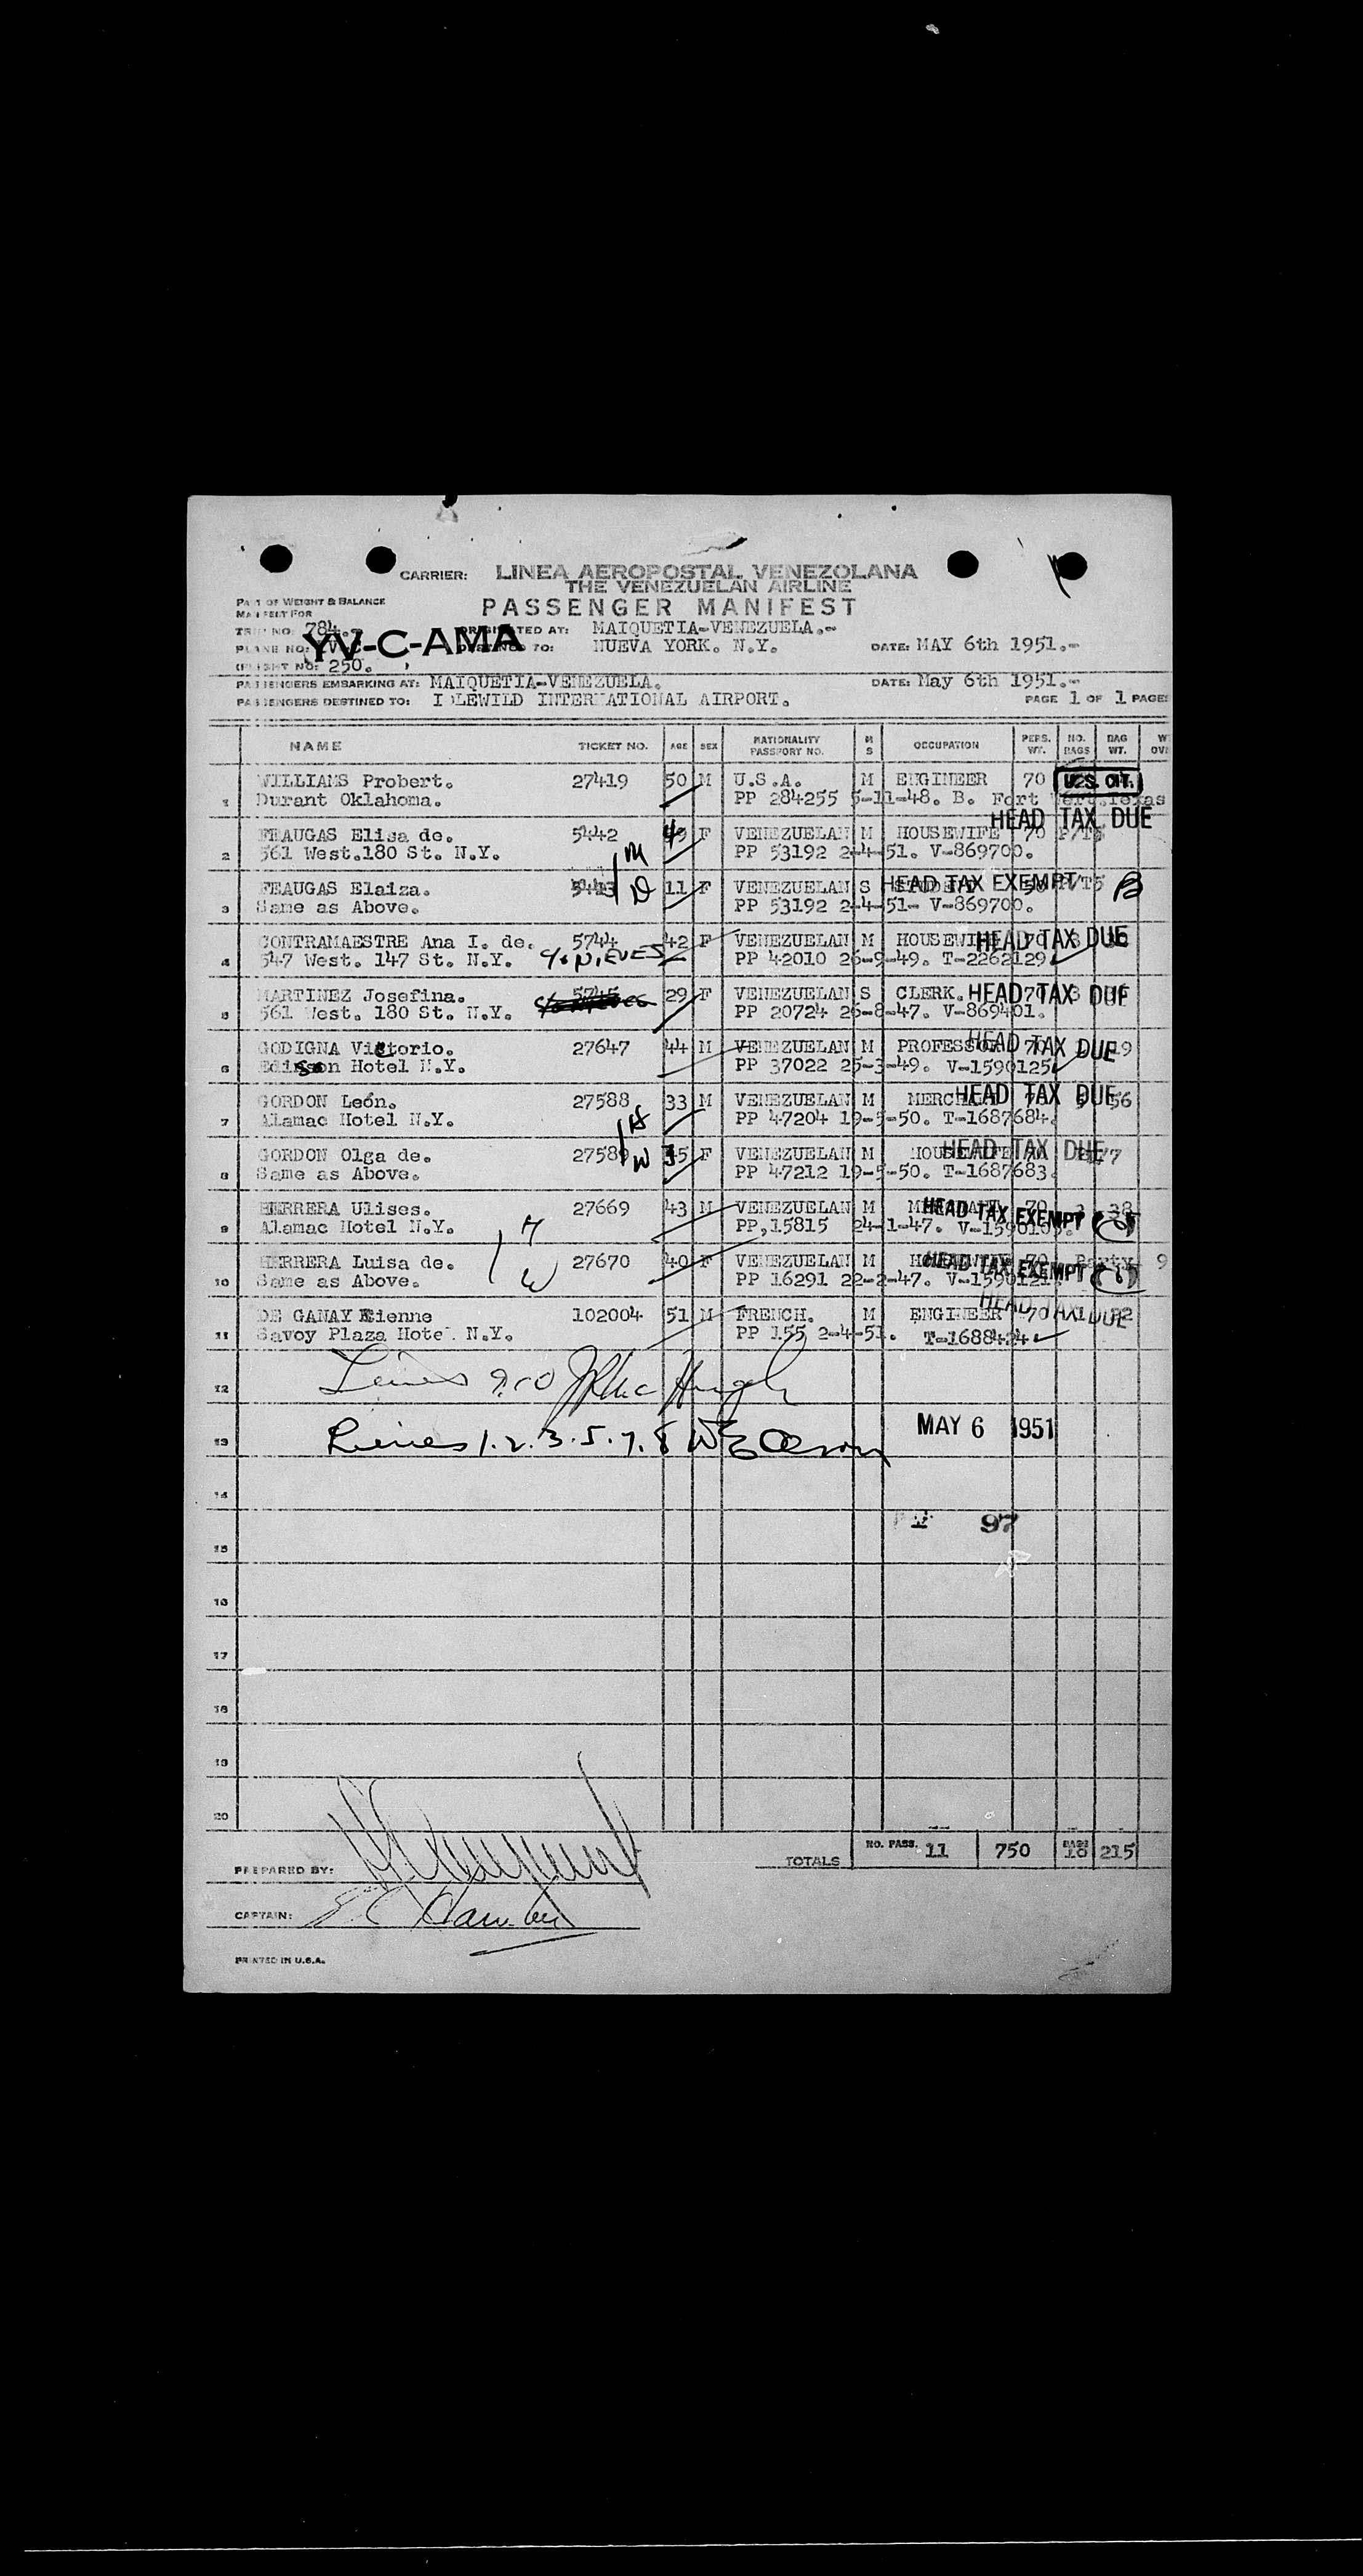 CARRIER: LINEA AEROPOSTAL VENEZOLANA
THE VENEZUELAN AIRLINE
PART OF WEIGHT & BALANCE
MANIFEST FOR
PASSENGER MANIFEST
TRIP NO: 784.- ORIGINATED AT: MAIQUETIA-VENEZUELA.-
PLANE NO: YV-C-AMA DESTINED TO: NUEVA YORK. N.Y. DATE: MAY 6th 1951.-
FLIGHT NO: 250.
PASSENGERS EMBARKING AT: MAIQUETIA-VENEZUELA. DATE: May 6th 1951.-
PASSENGERS DESTINED TO: IDLEWILD INTERNATIONAL AIRPORT. PAGE 1 OF 1 PAGES
NAME TICKET NO. AGE SEX NATIONALITY PASSPORT NO. M S OCCUPATION PERS. WT. NO. BAGS BAG WT.
WILLIAMS Probert. 27419 50 M U.S.A. M ENGINEER 70 U.S. CIT.
1 Durant Oklahoma. PP 284255 5-11-48. B. Fort Texas
HEAD TAX DUE
FEAUGAS Elisa de. 5442 49 F VENEZUELAN M HOUSEWIFE 70
2 561 West.180 St. N.Y. M PP 53192 2-4-51. V-869700.
FEAUGAS Elaiza. 5443 D 11 F VENEZUELAN S HEAD TAX EXEMPT B
3 Same as Above. PP 53192 2-4-51- V-869700.
CONTRAMAESTRE Ana I. de. 5744 42 F VENEZUELAN M HOUSEWIFE HEAD TAX DUE
4 547 West. 147 St. N.Y. c/o NIEVES PP 42010 26-9-49. T-2262129
MARTINEZ Josefina. 5745 29 F VENEZUELAN S CLERK. HEAD TAX DUE
5 561 West. 180 St. N.Y. PP 20724 26-8-47. V-869401.
GODIGNA Vittorio. 27647 44 M VENEZUELAN M PROFESSOR HEAD TAX DUE
6 Edison Hotel N.Y. PP 37022 25-3-49. V-1590125
GORDON León. 27588 33 M VENEZUELAN M MERCHANT HEAD TAX DUE 56
7 Alamac Hotel N.Y. H PP 47204 19-5-50. T-1687684.
GORDON Olga de. 27589 W 35 F VENEZUELAN M HOUSEWIFE HEAD TAX DUE
8 Same as Above. PP 47212 19-5-50. T-1687683.
HERRERA Ulises. 27669 43 M VENEZUELAN M MERCHANT 70 38
9 Alamac Hotel N.Y. H PP,15815 24-1-47. V-1590109. HEAD TAX EXEMPT
HERRERA Luisa de. 27670 40 F VENEZUELAN M HOUSEWIFE 70 9
10 Same as Above. W PP 16291 22-2-47. V-1590121. HEAD TAX EXEMPT
DE GANAY Etienne 102004 51 M FRENCH. M ENGINEER 70 HEAD TAX DUE
11 Savoy Plaza Hotel N.Y. PP 155 2-4-51. T-1688424
12 Lines 9.10 J P McHugh
13 Lines 1.2.3.5.7.8 MAY 6 1951
14
97
15
16
17
18
19
20
TOTALS NO. PASS. 11 750 BAGS 18 215
PREPARED BY:
CAPTAIN:
PRINTED IN U.S.A.